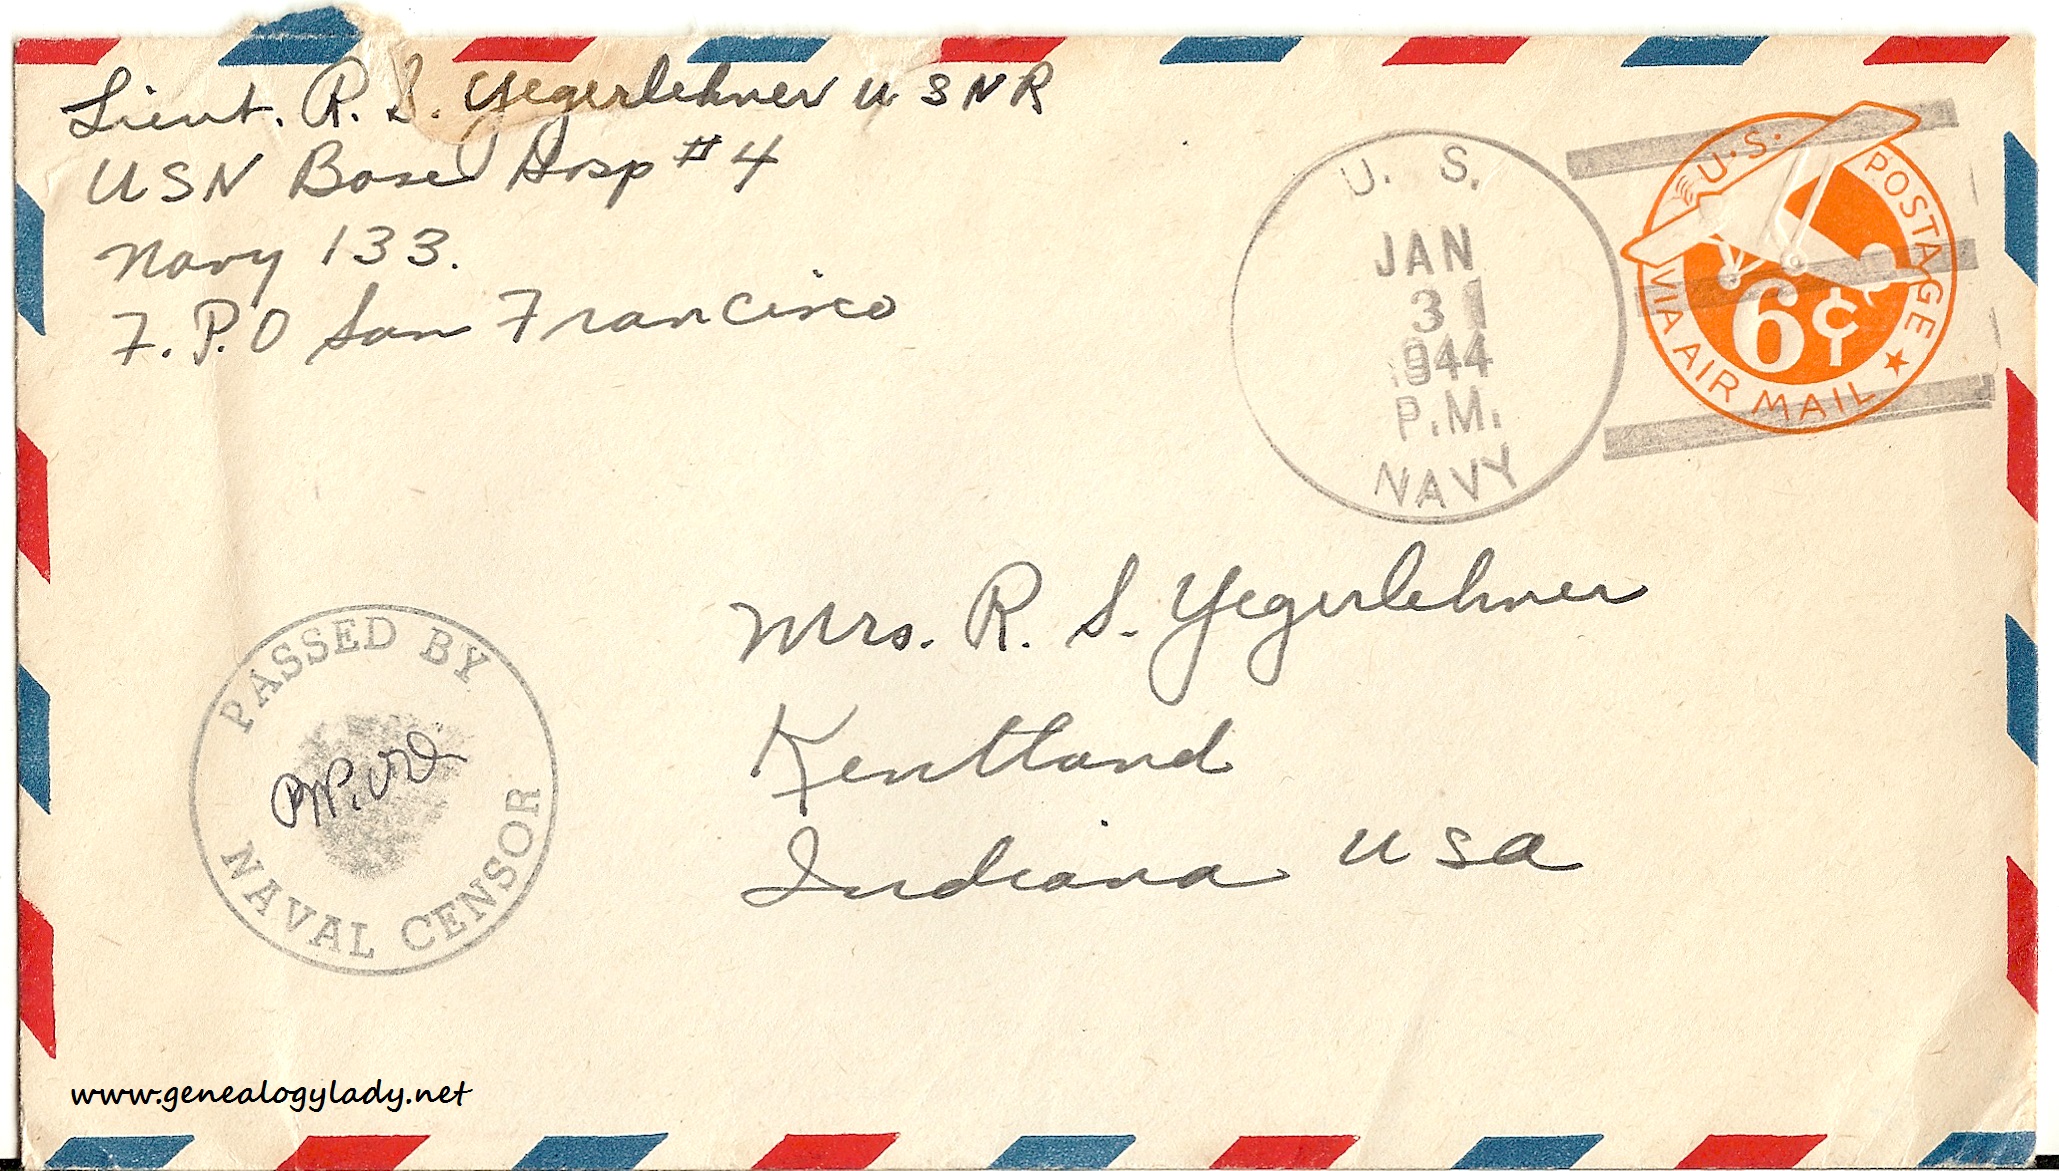 Lieut. R. S. Yegerlehner USNR
USN Base Hosp #4
Navy 133.
F.P.O San Francisco
U. S.
JAN
31
1944
P.M.
NAVY
U.S. POSTAGE
6¢
VIA AIR MAIL
Mrs. R. S. Yegerlehner
Kentland
Indiana USA
PASSED BY
NAVAL CENSOR
www.genealogylady.net